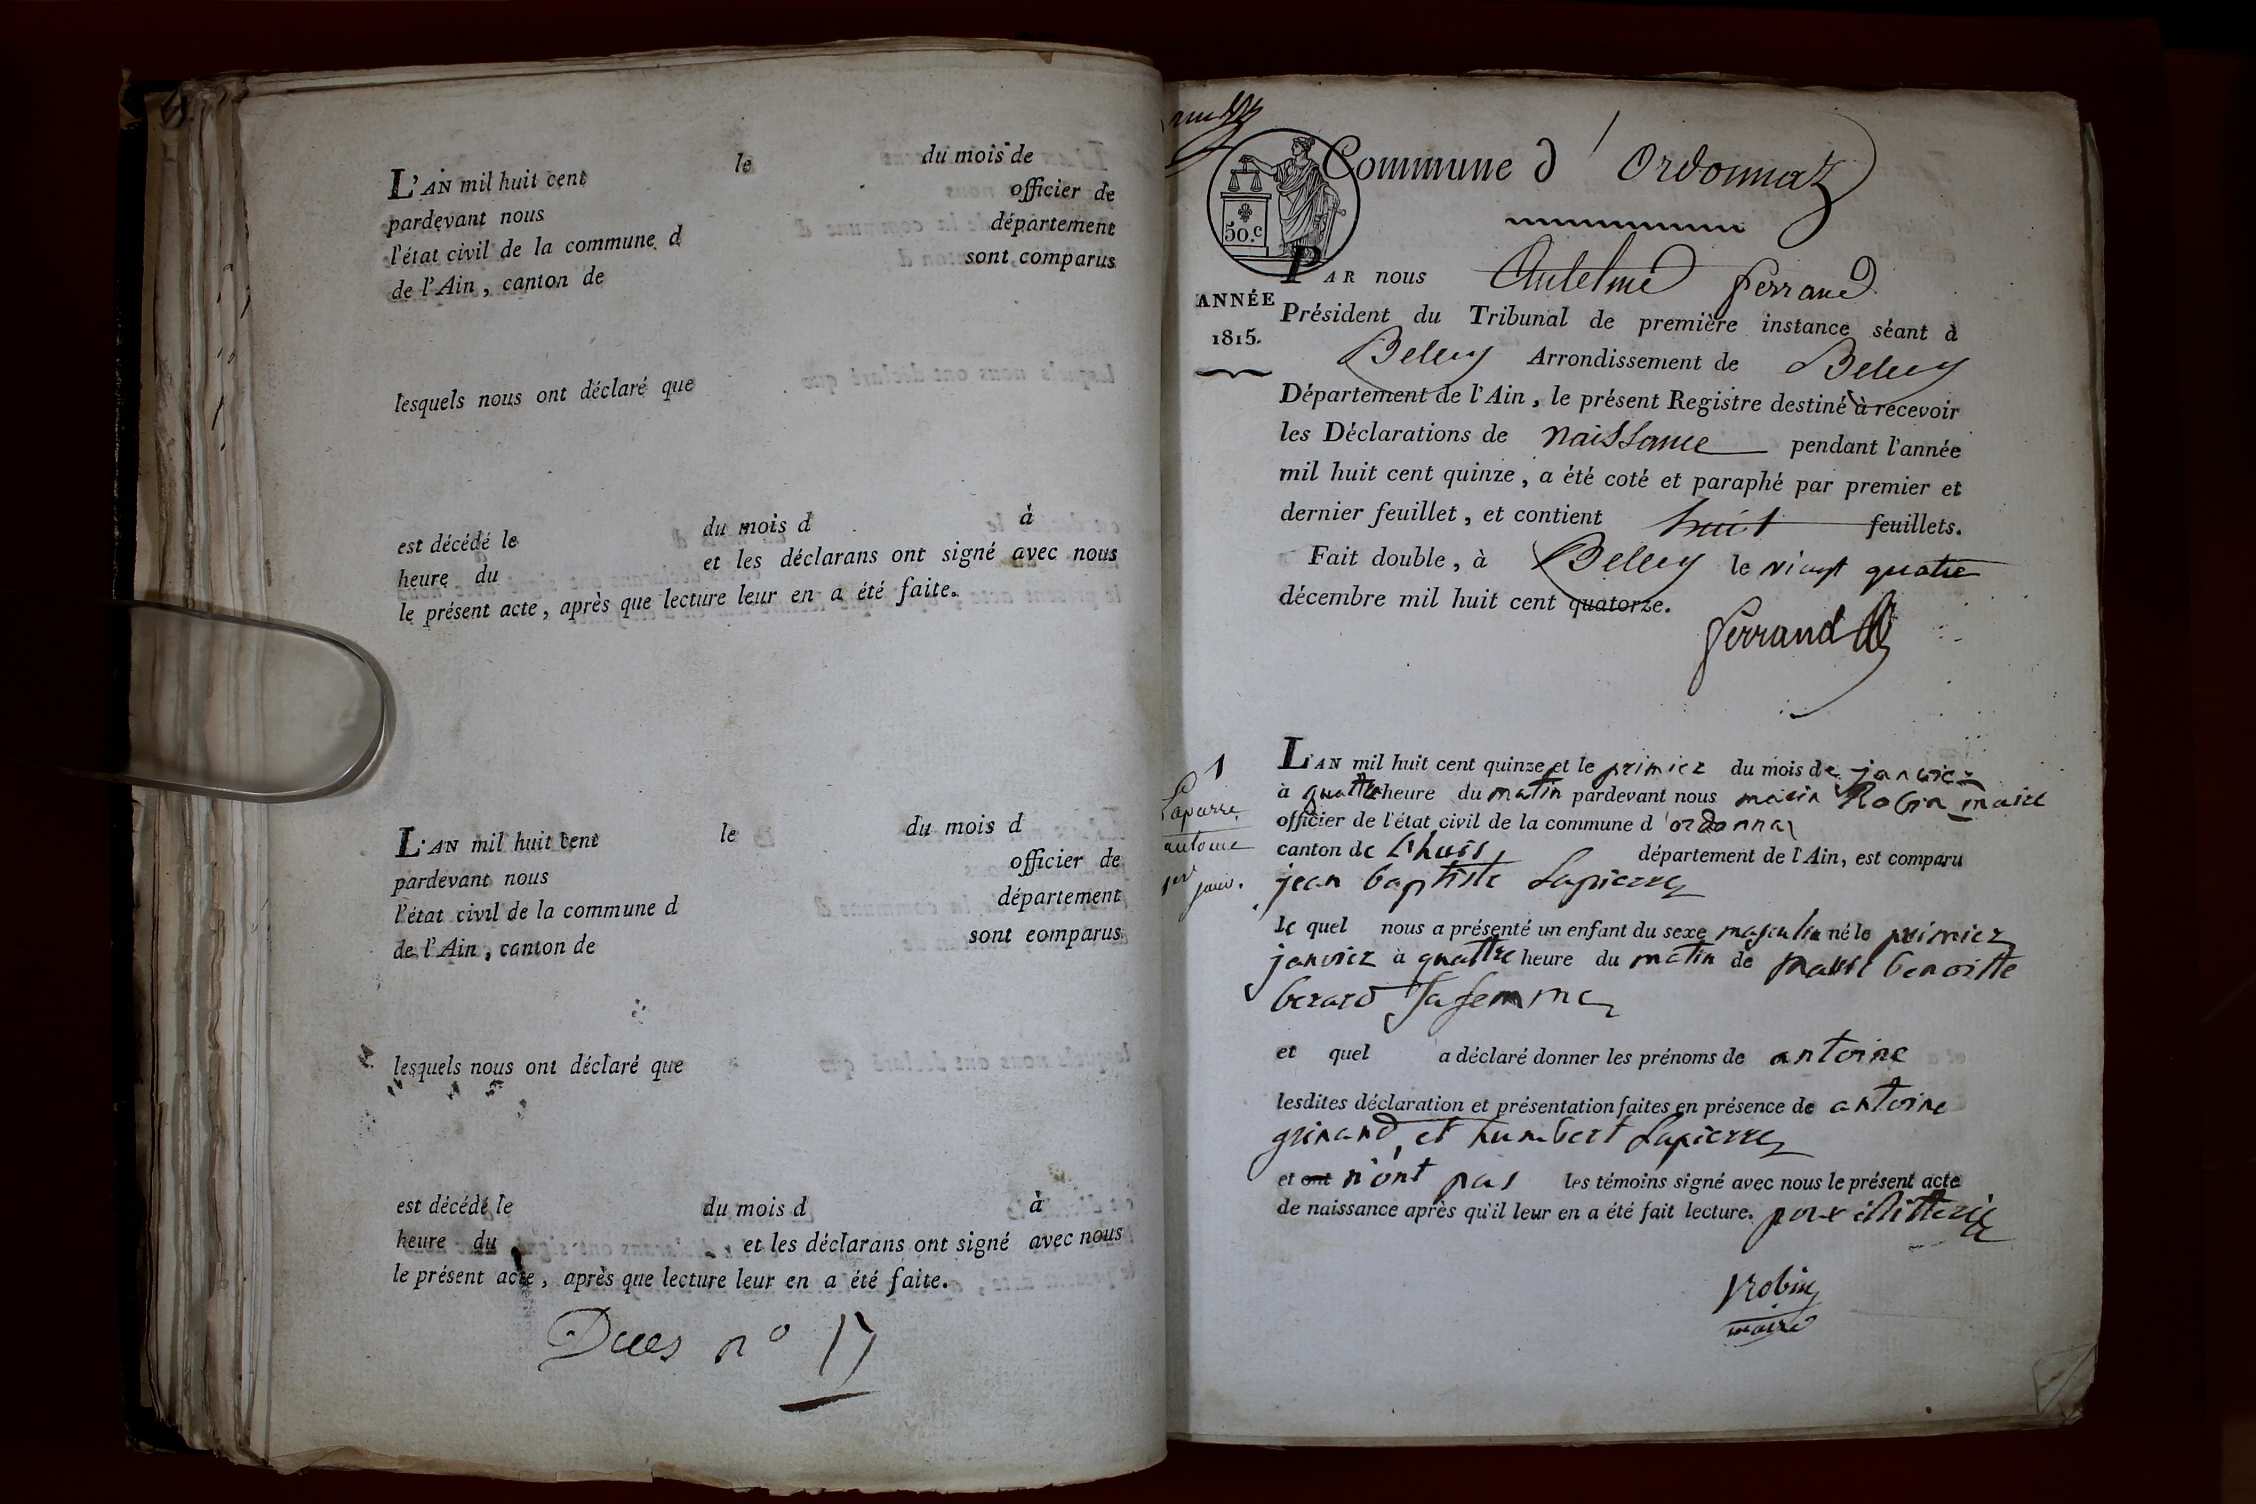 L'AN mil huit cent le du mois de
pardevant nous officier de
l'état civil de la commune d département
de l'Ain, canton de sont comparus
lesquels nous ont déclaré que
est décédé le du mois d à
heure du et les déclarans ont signé avec nous
le présent acte, après que lecture leur en a été faite.
L'AN mil huit cent le du mois d
pardevant nous officier de
l'état civil de la commune d département
de l'Ain, canton de sont comparus
lesquels nous ont déclaré que
est décédé le du mois d à
heure du et les déclarans ont signé avec nous
le présent acte, après que lecture leur en a été faite.
Dces n° 17
Commune d'Ordonnaz
50.c
PAR nous Antelme ferrand
ANNÉE
1815.
Président du Tribunal de première instance séant à
Belley Arrondissement de Belley
Département de l'Ain, le présent Registre destiné à recevoir
les Déclarations de naissance pendant l'année
mil huit cent quinze, a été coté et paraphé par premier et
dernier feuillet, et contient huit feuillets.
Fait double, à Belley le vingt quatre
décembre mil huit cent quatorze.
ferrand
1
Lapierre
antoine
1er janv.
L'AN mil huit cent quinze et le primier du mois de janvier
à quattre heure du matin pardevant nous Robin maire
officier de l'état civil de la commune d'ordonnaz
canton de Lhuis, département de l'Ain, est comparu
jean baptiste Lapierre
le quel nous a présenté un enfant du sexe masculin né le primier
janvier à quattre heure du matin de marie benoitte
berard sa femme
et quel a déclaré donner les prénoms de antoine
lesdites déclaration et présentation faites en présence de antoine
grinand, et humbert Lapierre
et ont n'ont pas les témoins signé avec nous le présent acte
de naissance après qu'il leur en a été fait lecture. pour
Robin
maire